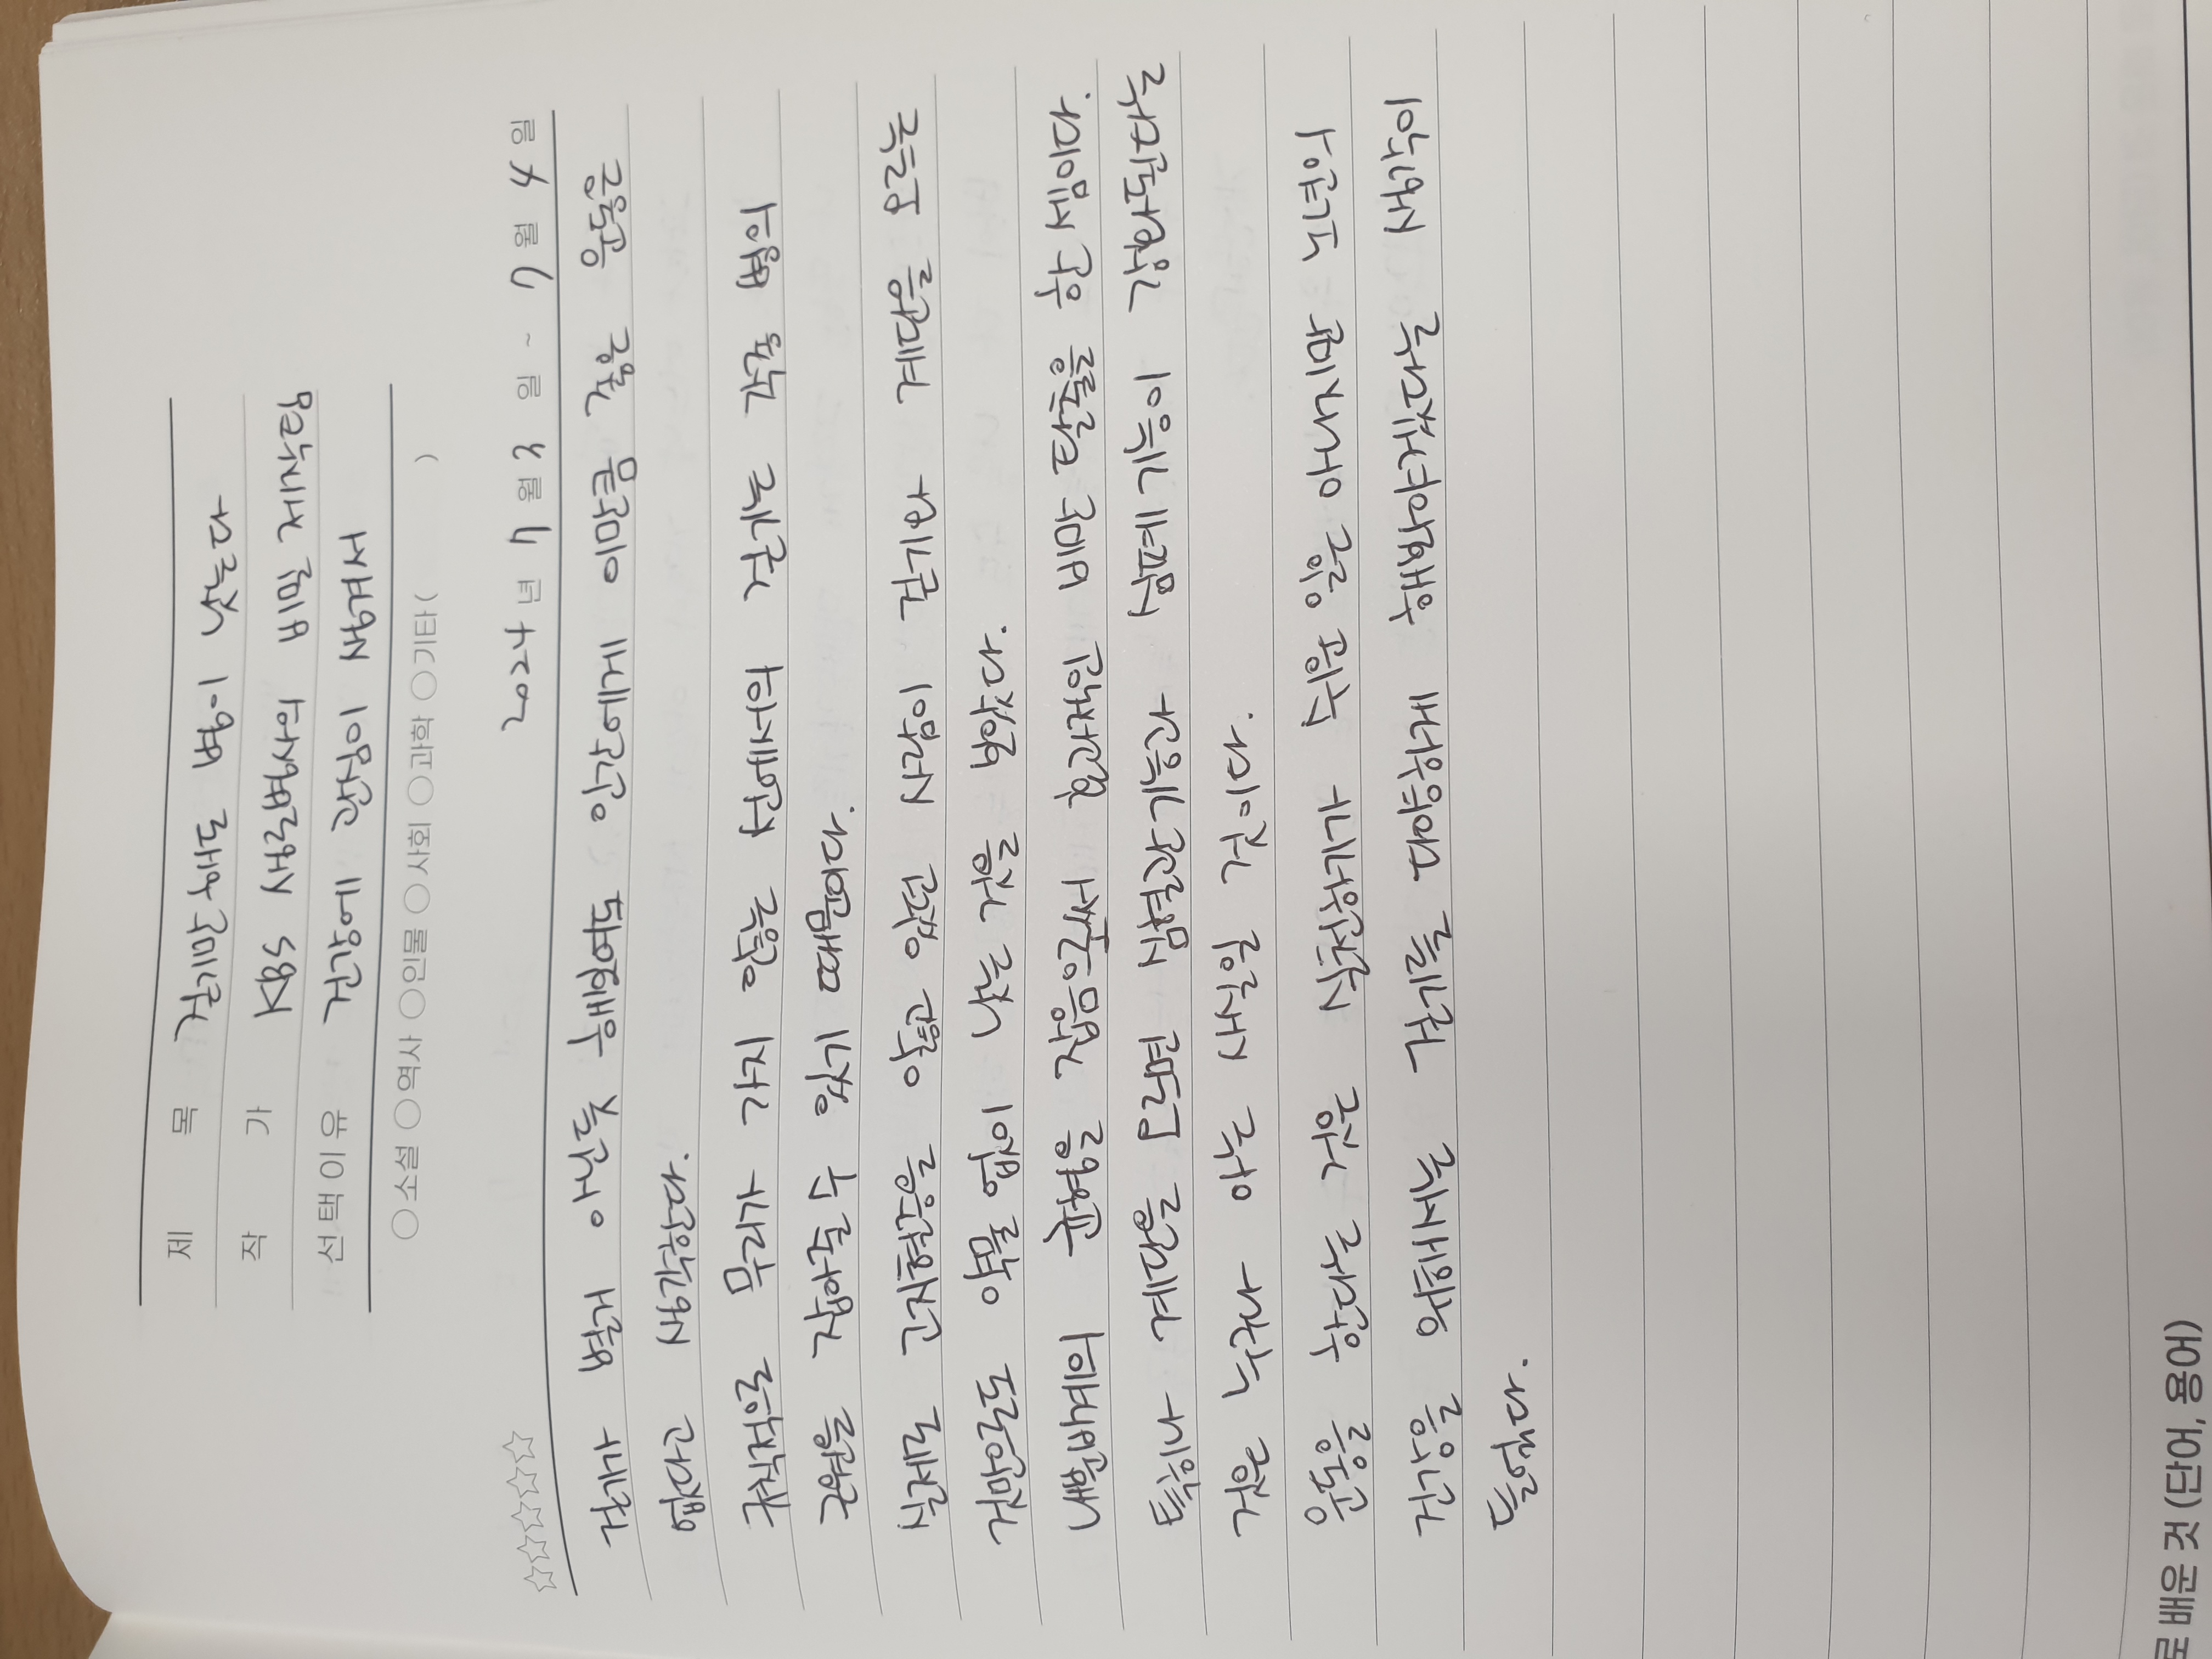 제 목 걷기만 해도 병이 낫는다
작 가 KBS 생로병사의 비밀 제작팀
선택이유 건강에 관심이 생겨서
○소설 ○역사 ○인물 ○사회 ○과학 ○기타( )
☆☆☆☆☆ 2024년 7월 3일 ~ 7월 4일
걷기가 별거 아닌듯 해보여도 인간에게 이만큼 좋은 운동은
없다고 생각한다.
규칙적으로 무리가 가지 않는 선에서의 걷기는 각종 병의
근원을 잡아줄 수 있기 때문이다.
실제로 고지혈증을 앓고 있던 사람이 걷기와 계단을 오르는
것만으로도 약물 없이 낫는 것을 보았다.
내분비계의 균형을 잡음으로써 효과적인 비만 탈출을 한 셈이다.
특히나 계단을 오르면 심혈관 기능과 심폐 기능이 강화된다는
것은 누구나 아는 사실일 것이다.
운동을 한다는 것은 실천하기가 쉬운 일은 아니지만 노년의
건강을 위해서는 걷기를 다양하게 해봐야겠다는 생각이
들었다.
로 배운 것 (단어, 용어)